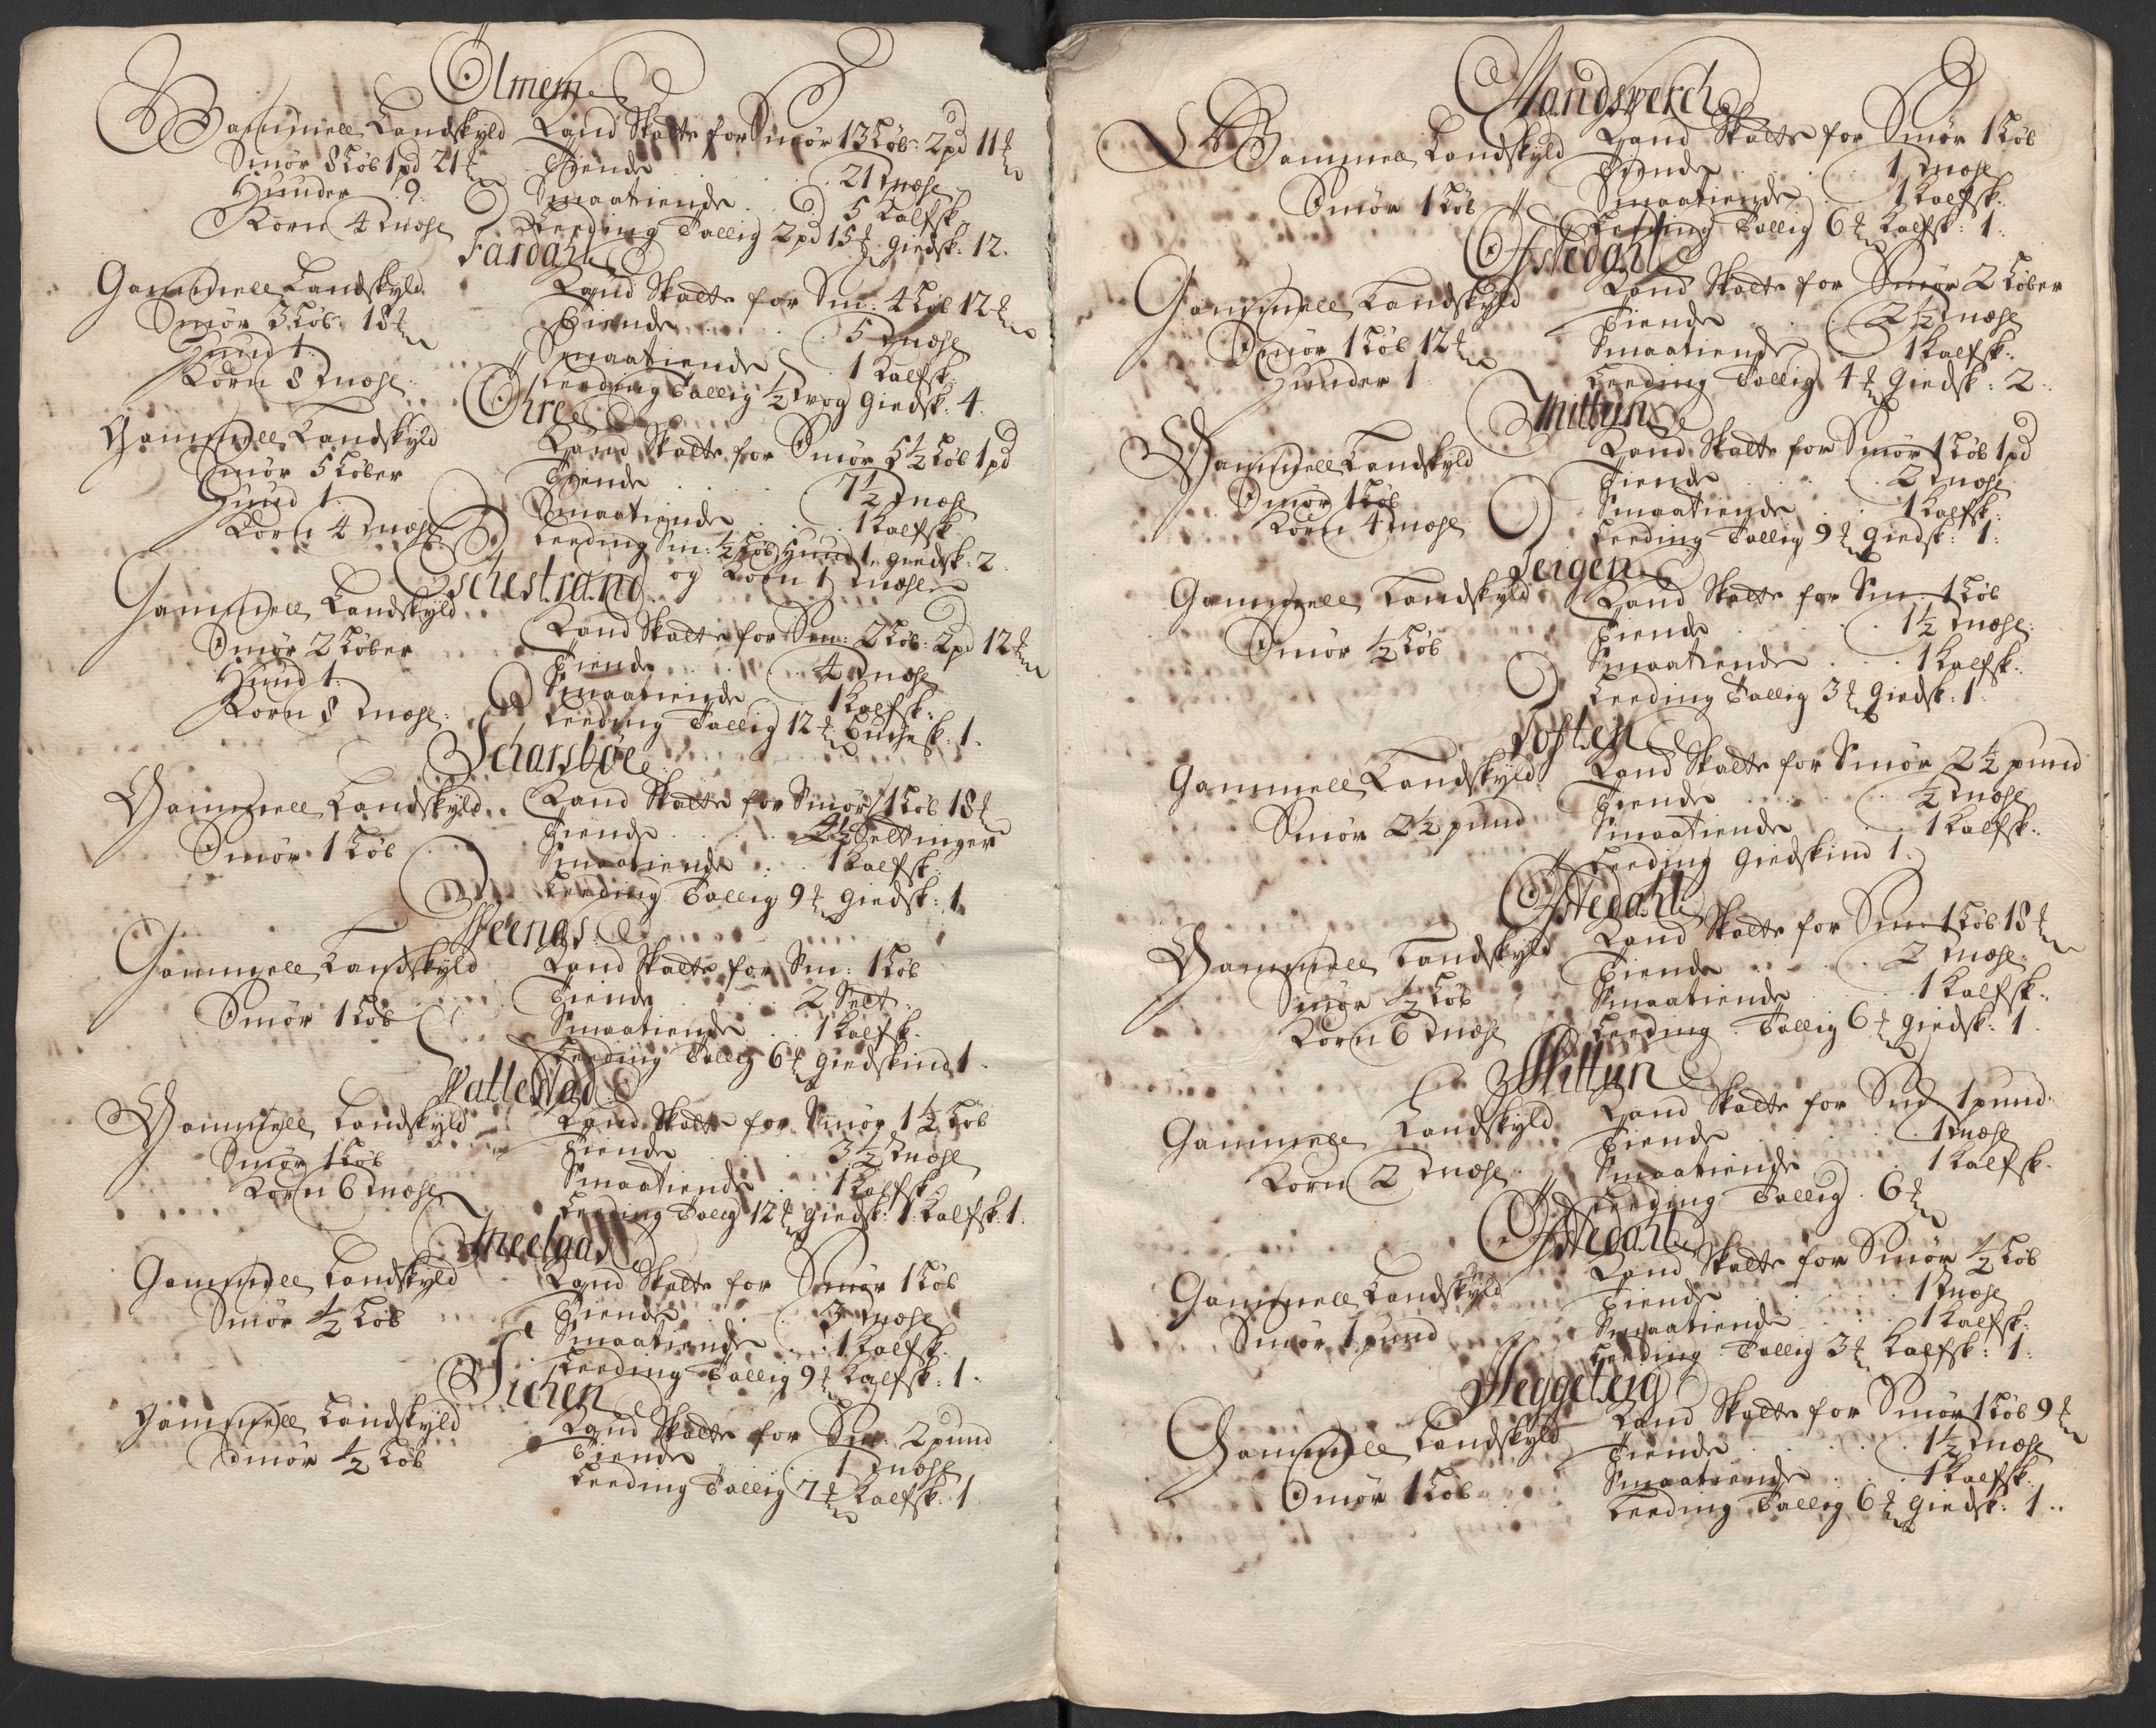 Olmem
Gammell Landskyld
Smör 8 Löb 1 pd 21 ℔
Huuder 9.
Korn 4 Mæhl
Land Skatte for Smör 13 Löb: 2 pd 11 ℔
Tiende . . . 21 Mæhl
Smaatiende . 5 Kalfsk:
Leeding Tallig 2 pd 15 ℔ Giedsk: 12.
Fardahl
Gammell Landskyld
Smör 3 Löb: 18 ℔
Huud 1:
Korn 8 Mæhl:
Land Skatte for Sm: 4 Löb 12 ℔
Tiende . . . 5 Mæhl
Smaatiende . 1 Kalfsk:
Leeding Tallig ½ Vog Giedsk: 4.
Ohre
Gammell Landskyld
Smör 5 Löber
Huud 1:
Korn 4 Mæhl
Land Skatte for Smör 5½ Löb 1 pd
Tiende . . . 7½ Mæhl
Smaatiende . . 1 Kalfsk
Leeding Sm: ½ Löb Huud 1. giedsk: 2.
og Korn 1 Mæhl
Eschestrand
Gammell Landskyld
Smör 2 Löber
Huud 1:
Korn 8 Mæhl:
Land Skatte for Sm: 2 Löb: 2 pd 12 ℔
Tiende . . . 4 Mæhl
Smaatiende 1 Kalfsk:
Leeding Tallig 12 ℔ Buchesk: 1.
Scharsböe
Gammell Landskyld
Smör 1 Löb
Land Skatte for Smör 1 Löb 18 ℔
Tiende . . . 4½ Seltinger
Smaatiende . 1 Kalfsk:
Leeding Tallig 9 ℔ giedsk: 1.
Gammell Landskyld
Smör 1 Löb
Land Skatte for Sm: 1 Löb
Tiende . . . 2 Selt:
Smaatiende . . 1 Kalfsk.
Leeding Tallig 6 ℔ giedskind 1.
Vallestad
Gammell Landskyld
Smör 1 Löb
Korn 6 Mæhl
Land Skatte for Smör 1½ Löb
Tiende . . . 3½ Mæhl
Smaatiende . . 1 Kalfsk:
Leeding Tallig 12 ℔ giedsk: 1. Kalfsk: 1.
Gammell Landskyld
Smör ½ Löb
Land Skatte for Smör 1 Löb
Tiende . . . 3 Mæhl
Smaatiende . . 1 Kalfsk:
Leeding Tallig 9 ℔ Kalfsk: 1.
Gammell Landskyld
Smör ½ Löb
Land Skatte for Sm: 2 pund
Tiende . . . 1 Mæhl
Leeding Tallig 7 ℔ Kalfsk: 1
Mandsverch
Gammell Landskyld
Smör 1 Löb
Land Skatte for Smör 1 Löb
Tiende . . . 1 Mæhl
Smaatiende 1 Kalfsk:
Leeding Tallig 6 ℔ Kalfsk: 1.
Ofstedahl
Gammell Landskyld
Smör 1 Löb 12 ℔
Huuder 1.
Land Skatte for Smör 2 Löber
Tiende . . . 2½ Mæhl
Smaatiende 1 Kalfsk:
Leeding Tallig 4 ℔ Giedsk: 2.
Mittun
Gammell Landskyld
Smör 1 Löb
Korn 4 Mæhl
Land Skatte for Smör 1 Löb 1 pd
Tiende . . . 2 Mæhl
Smaatiende . . 1 Kalfsk:
Leeding Tallig 9 ℔ giedsk: 1:
Teigen
Gammell Landskyld
Smör ½ Löb
Land Skatte for Sm: 1 Löb
Tiende . . . 1½ Mæhl:
Smaatiende . . . 1 Kalfsk:
Leeding Tallig 3 ℔ giedsk: 1.
Gammell Landskyld
Smör 2½ pund
Land Skatte for Smör 2½ pund
Tiende . . . ½ Mæhl
Smaatiende . . 1 Kalfsk:
Leeding Giedskind 1.
Ofstedahl
Gammell Landskyld
Smör ½ Löb
Korn 6 Mæhl
Land Skatte for Sm: 1 Löb 18 ℔
Tiende . . . 2 Mæhl:
Smaatiende . . 1 Kalfsk:
Leeding Tallig 6 ℔ giedsk: 1.
Mittun
Gammell Landskyld
Korn 2 Mæhl
Land Skatte for Sm: 1 pund.
Tiende . . . 1 Mæhl
Smaatiende . . 1 Kalfsk.
Leeding Tallig . 6 ℔
Ofstedahl
Gammell Landskyld
Smör 1 pund
Land Skatte for Smör ½ Löb
Tiende . . . 1 Mæhl
Smaatiende . . 1 Kalfsk:
Leeding Tallig 3 ℔ Kalfsk: 1.
Heggeteig
Gammell Landskyld
Smör 1 Löb
Land Skatte for Smör 1 Löb 9 ℔
Tiende . . . 1½ Mæhl
Smaatiende . . 1 Kalfsk:
Leeding Tallig 6 ℔ giedsk: 1.